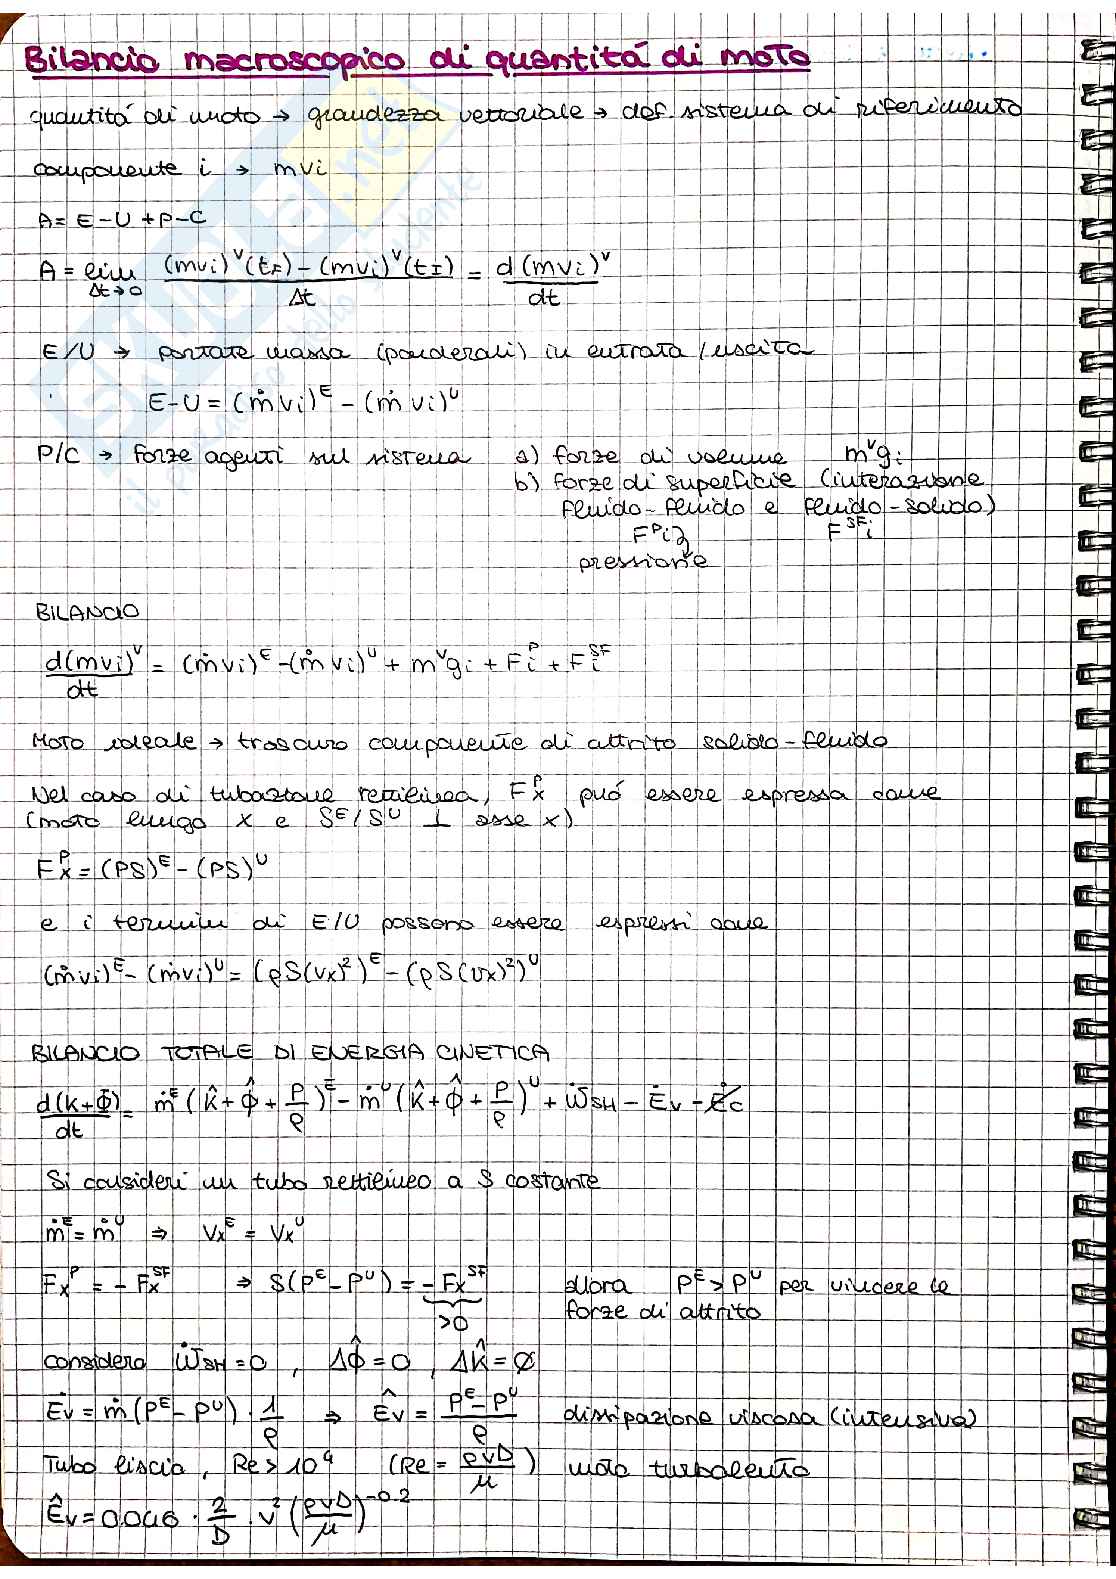 Bilancio macroscopico di quantitá di moto
quantitá di moto → grandezza vettoriale → def. sistema di riferimento
componente i → mvi
A = E - U + P - C
A = lim Δt→0 ((mvi)^V(tF) - (mvi)^V(tI))/Δt = d(mvi)^V/dt
E/U → portate massa (ponderali) in entrata/uscita
E-U = (ṁvi)^E - (ṁvi)^U
P/C → forze agenti sul sistema a) forze di volume m^V gi
b) forze di superficie (interazione
fluido-fluido e fluido-solido)
F^P i F^SF i
pressione
BILANCIO
d(mvi)^V/dt = (ṁvi)^E - (ṁvi)^U + m^V gi + F^P i + F^SF i
Moto ideale → trascuro componente di attrito solido-fluido
Nel caso di tubazione rettilinea, F^P x puó essere espressa come
(moto lungo x e S^E/S^U ⊥ asse x)
F^P x = (PS)^E - (PS)^U
e i termini di E/U possono essere espressi come
(ṁvi)^E - (ṁvi)^U = (ρS(vx)²)^E - (ρS(vx)²)^U
BILANCIO TOTALE DI ENERGIA CINETICA
d(K+Φ)/dt = ṁ^E (K̂ + Φ̂ + P/ρ)^E - ṁ^U (K̂ + Φ̂ + P/ρ)^U + ẆSH - Ėv - Ėc
Si consideri un tubo rettilineo a S costante
ṁ^E = ṁ^U ⇒ Vx^E = Vx^U
Fx^P = - Fx^SF ⇒ S(P^E - P^U) = - Fx^SF allora P^E > P^U per vincere le
>0 forze di attrito
considero ẆSH = 0 , ΔΦ̂ = 0 , ΔK̂ = Ø
Ėv = ṁ(P^E - P^U) · 1/ρ ⇒ Êv = (P^E - P^U)/ρ dissipazione viscosa (intensiva)
Tubo liscio, Re > 10^4 (Re = ρvD/μ) moto turbolento
Êv = 0.046 · 2/D · v² (ρvD/μ)^-0.2